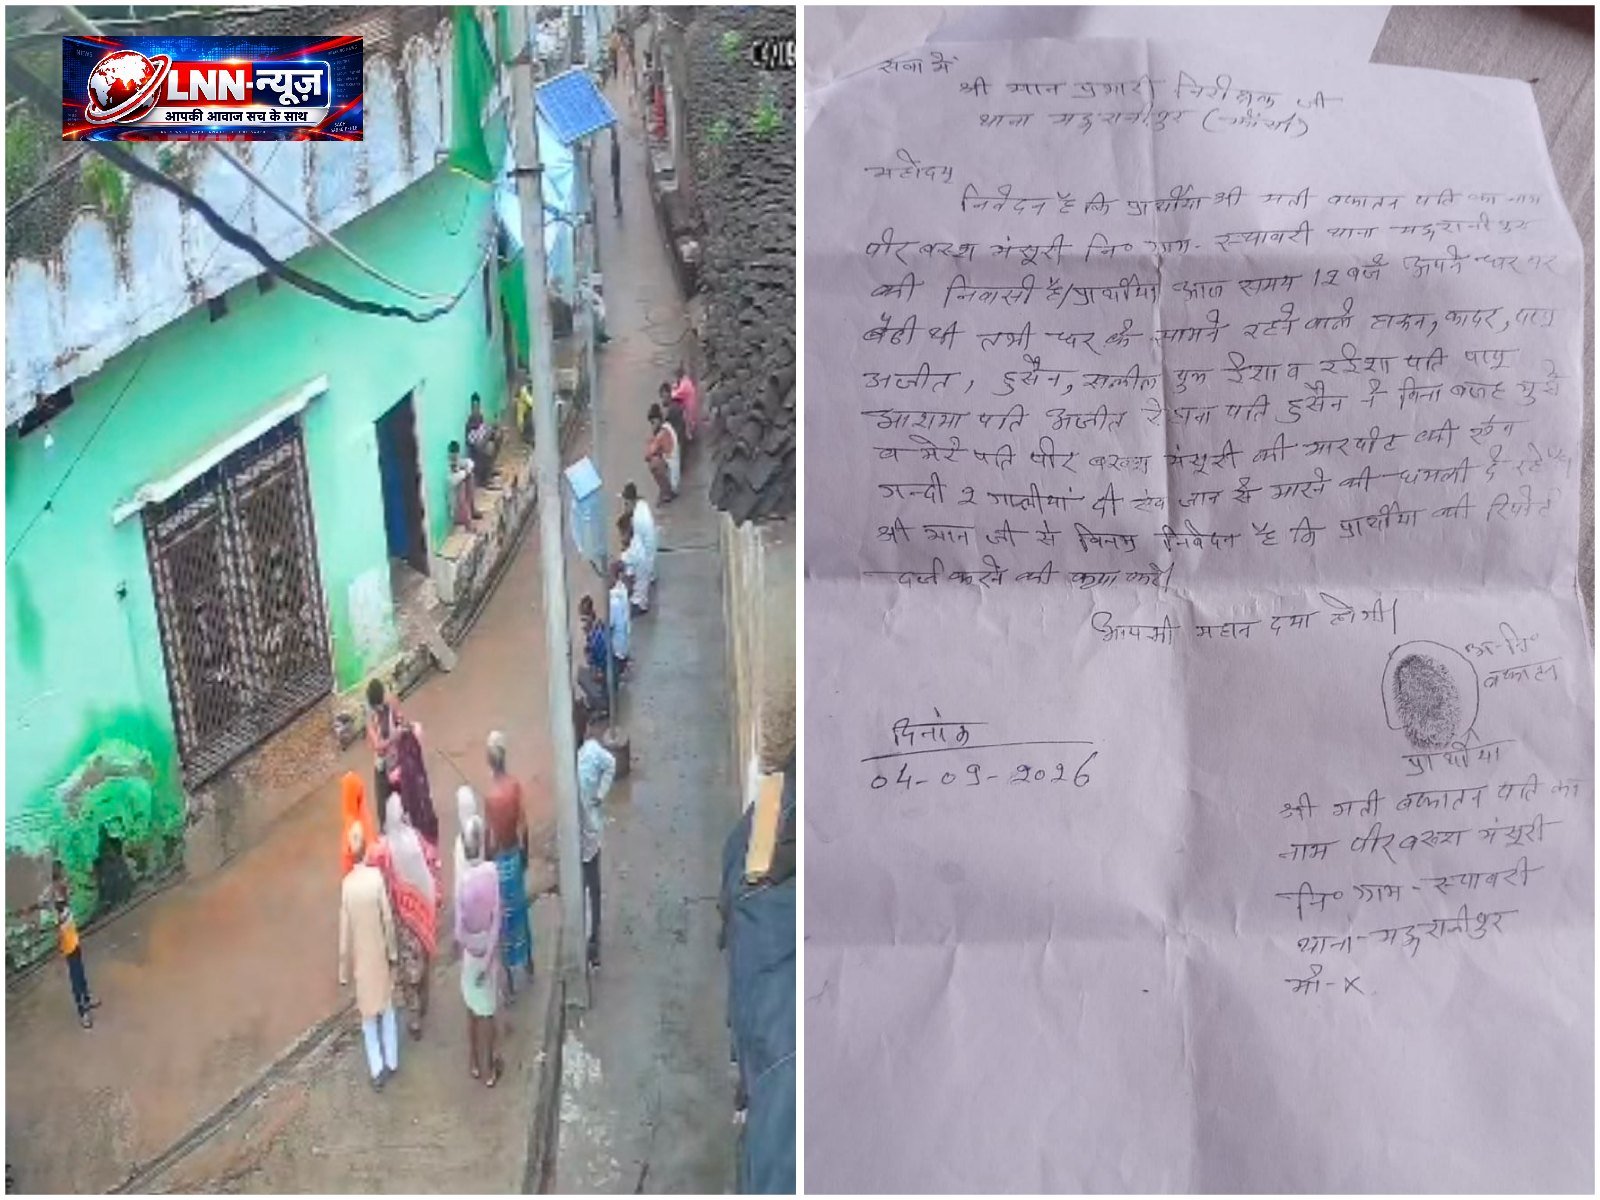 LNN-न्यूज़
आपकी आवाज सच के साथ
सेवा में
श्री मान प्रभारी निरीक्षक जी
थाना मऊरानीपुर (झाँसी)
महोदय
निवेदन है कि प्रार्थीया श्री मती वकातन पति का नाम
पीर बख्श मंसूरी नि० ग्राम- स्यावरी थाना मऊरानीपुर
की निवासी है/प्रार्थीया आज समय 12 बजे अपने घर पर
बैठी थी तभी घर के सामने रहने वाले हाकन, कादर, पप्पू
अजीत, हुसैन, सलील पुत्र ईशा व रईशा पति पप्पू
आशमा पति अजीत रेहाना पति हुसैन ने बिना बजह मुझे
व मेरे पति पीर बख्श मंसूरी की मारपीट की एवं
गन्दी 2 गालीयां दी एवं जान से मारने की धमकी दे रहे
श्री मान जी से विनम्र निवेदन है कि प्रार्थीया की रिपोर्ट
दर्ज करने की कृपा करें।
आपकी महान दया होगी।
अ-नि०
वकातन
प्रार्थीया
दिनांक
04-09-2026
श्री मती वकातन पति का
नाम पीर बख्श मंसूरी
नि० ग्राम - स्यावरी
थाना- मऊरानीपुर
मो-X